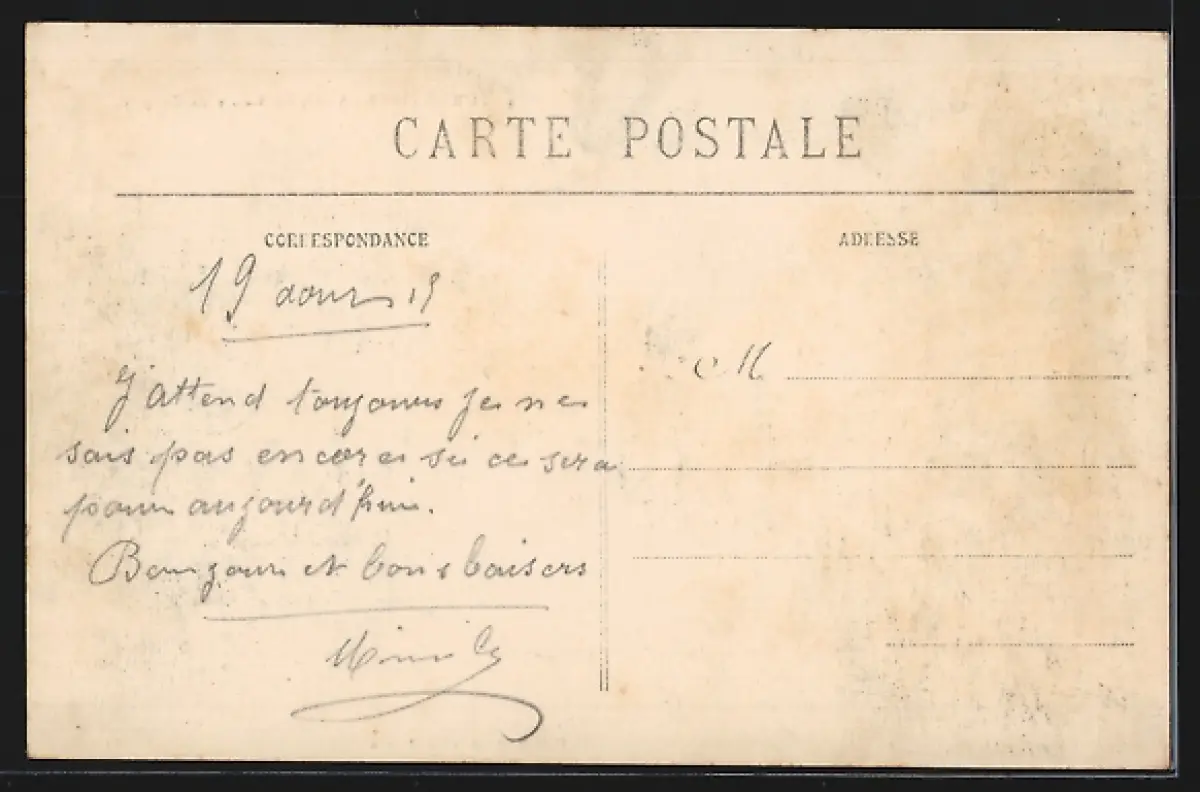 CARTE POSTALE
CORRESPONDANCE
ADRESSE
19 aout 15
M
J'attend toujours je ne
sais pas encore si ce sera
pour aujourd'hui.
Bonjour et bons baisers